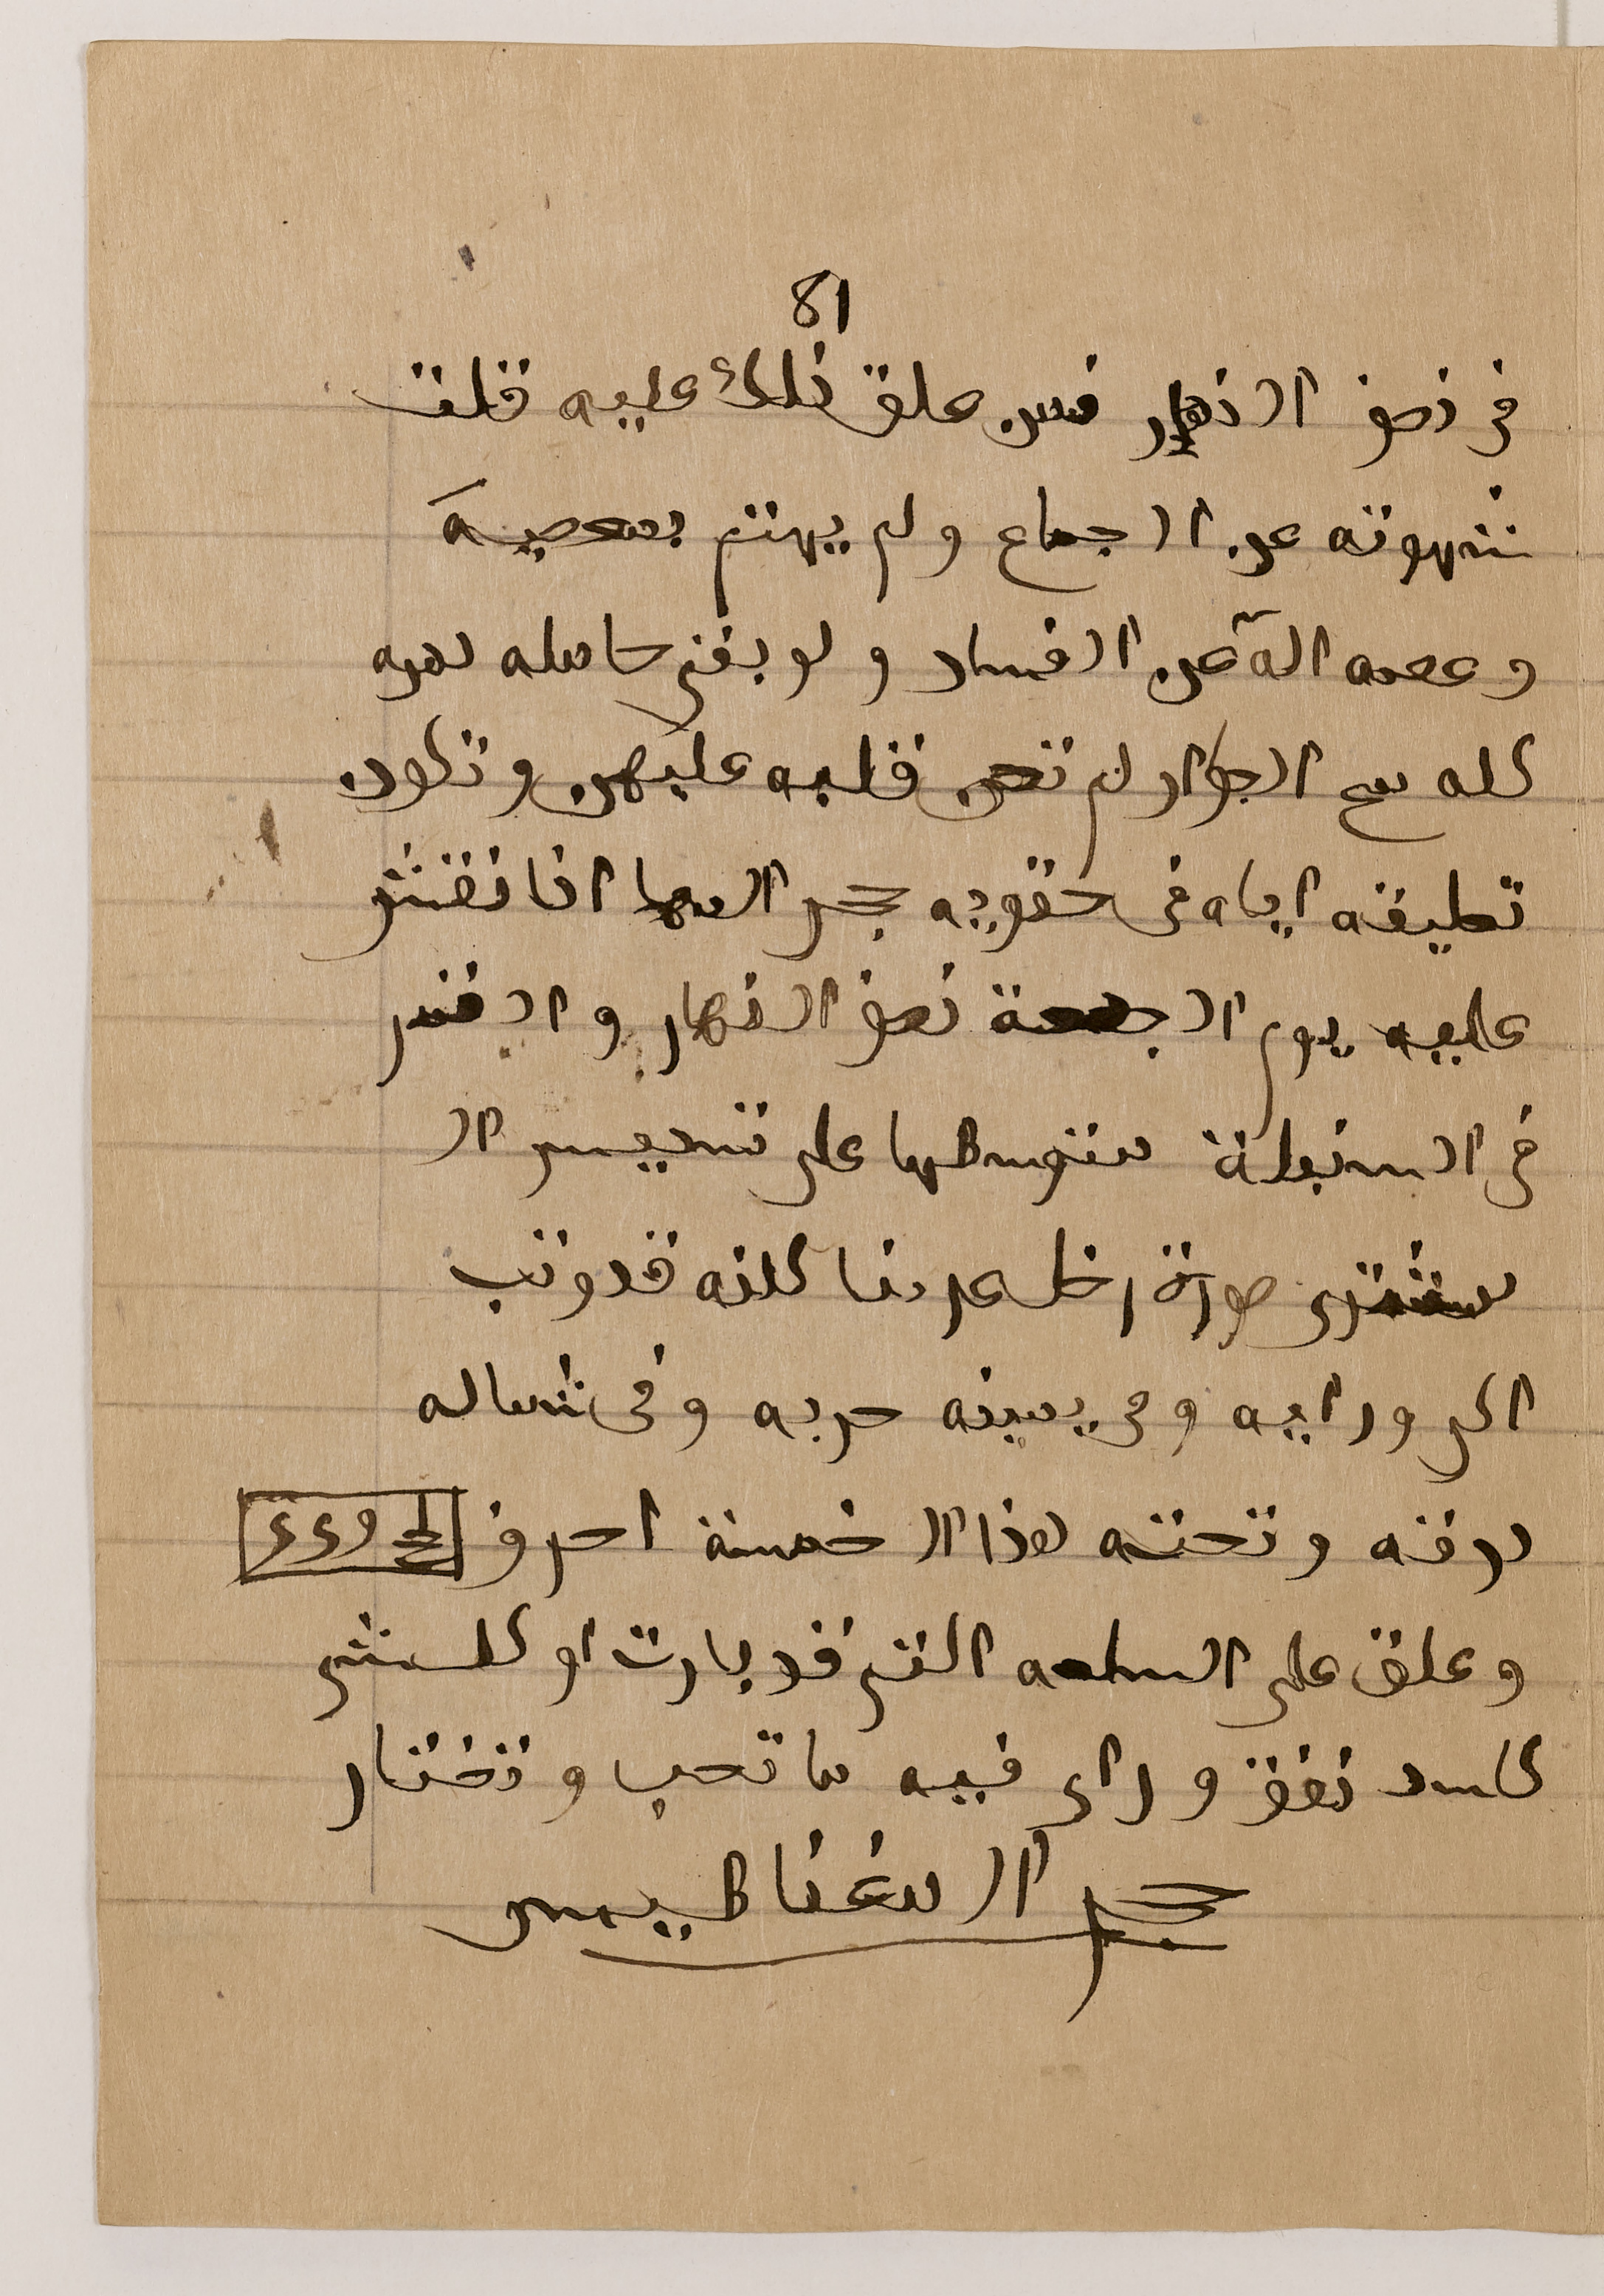 81
فى نصف النهار فمن علق ذلك عليه قلت
شهوته عن الجماع ولم يهتم بمعصية
وعصمه الله عن الفساد ولو بقى حامله دهره
كله مع الجوار لم تحن قلبه عليهن وتكون
تعليقه اياه فى حقويه حجر المها اذا نقش
عليه يوم الجمعة نصف النهار والقمر
فى السنبلة متوسطها على تسديس ال
مشترى صورة رجل عريناً كانه قد وثب
الى ورايه وفى يمينه حربه وفى شماله
درقه وتحته هذا الخمسة احرف
وعلق على السلعه التى قد بارت او كل شى
كاسد نفق وراى فيه ما تحب وتختار
حجر المغناطيس